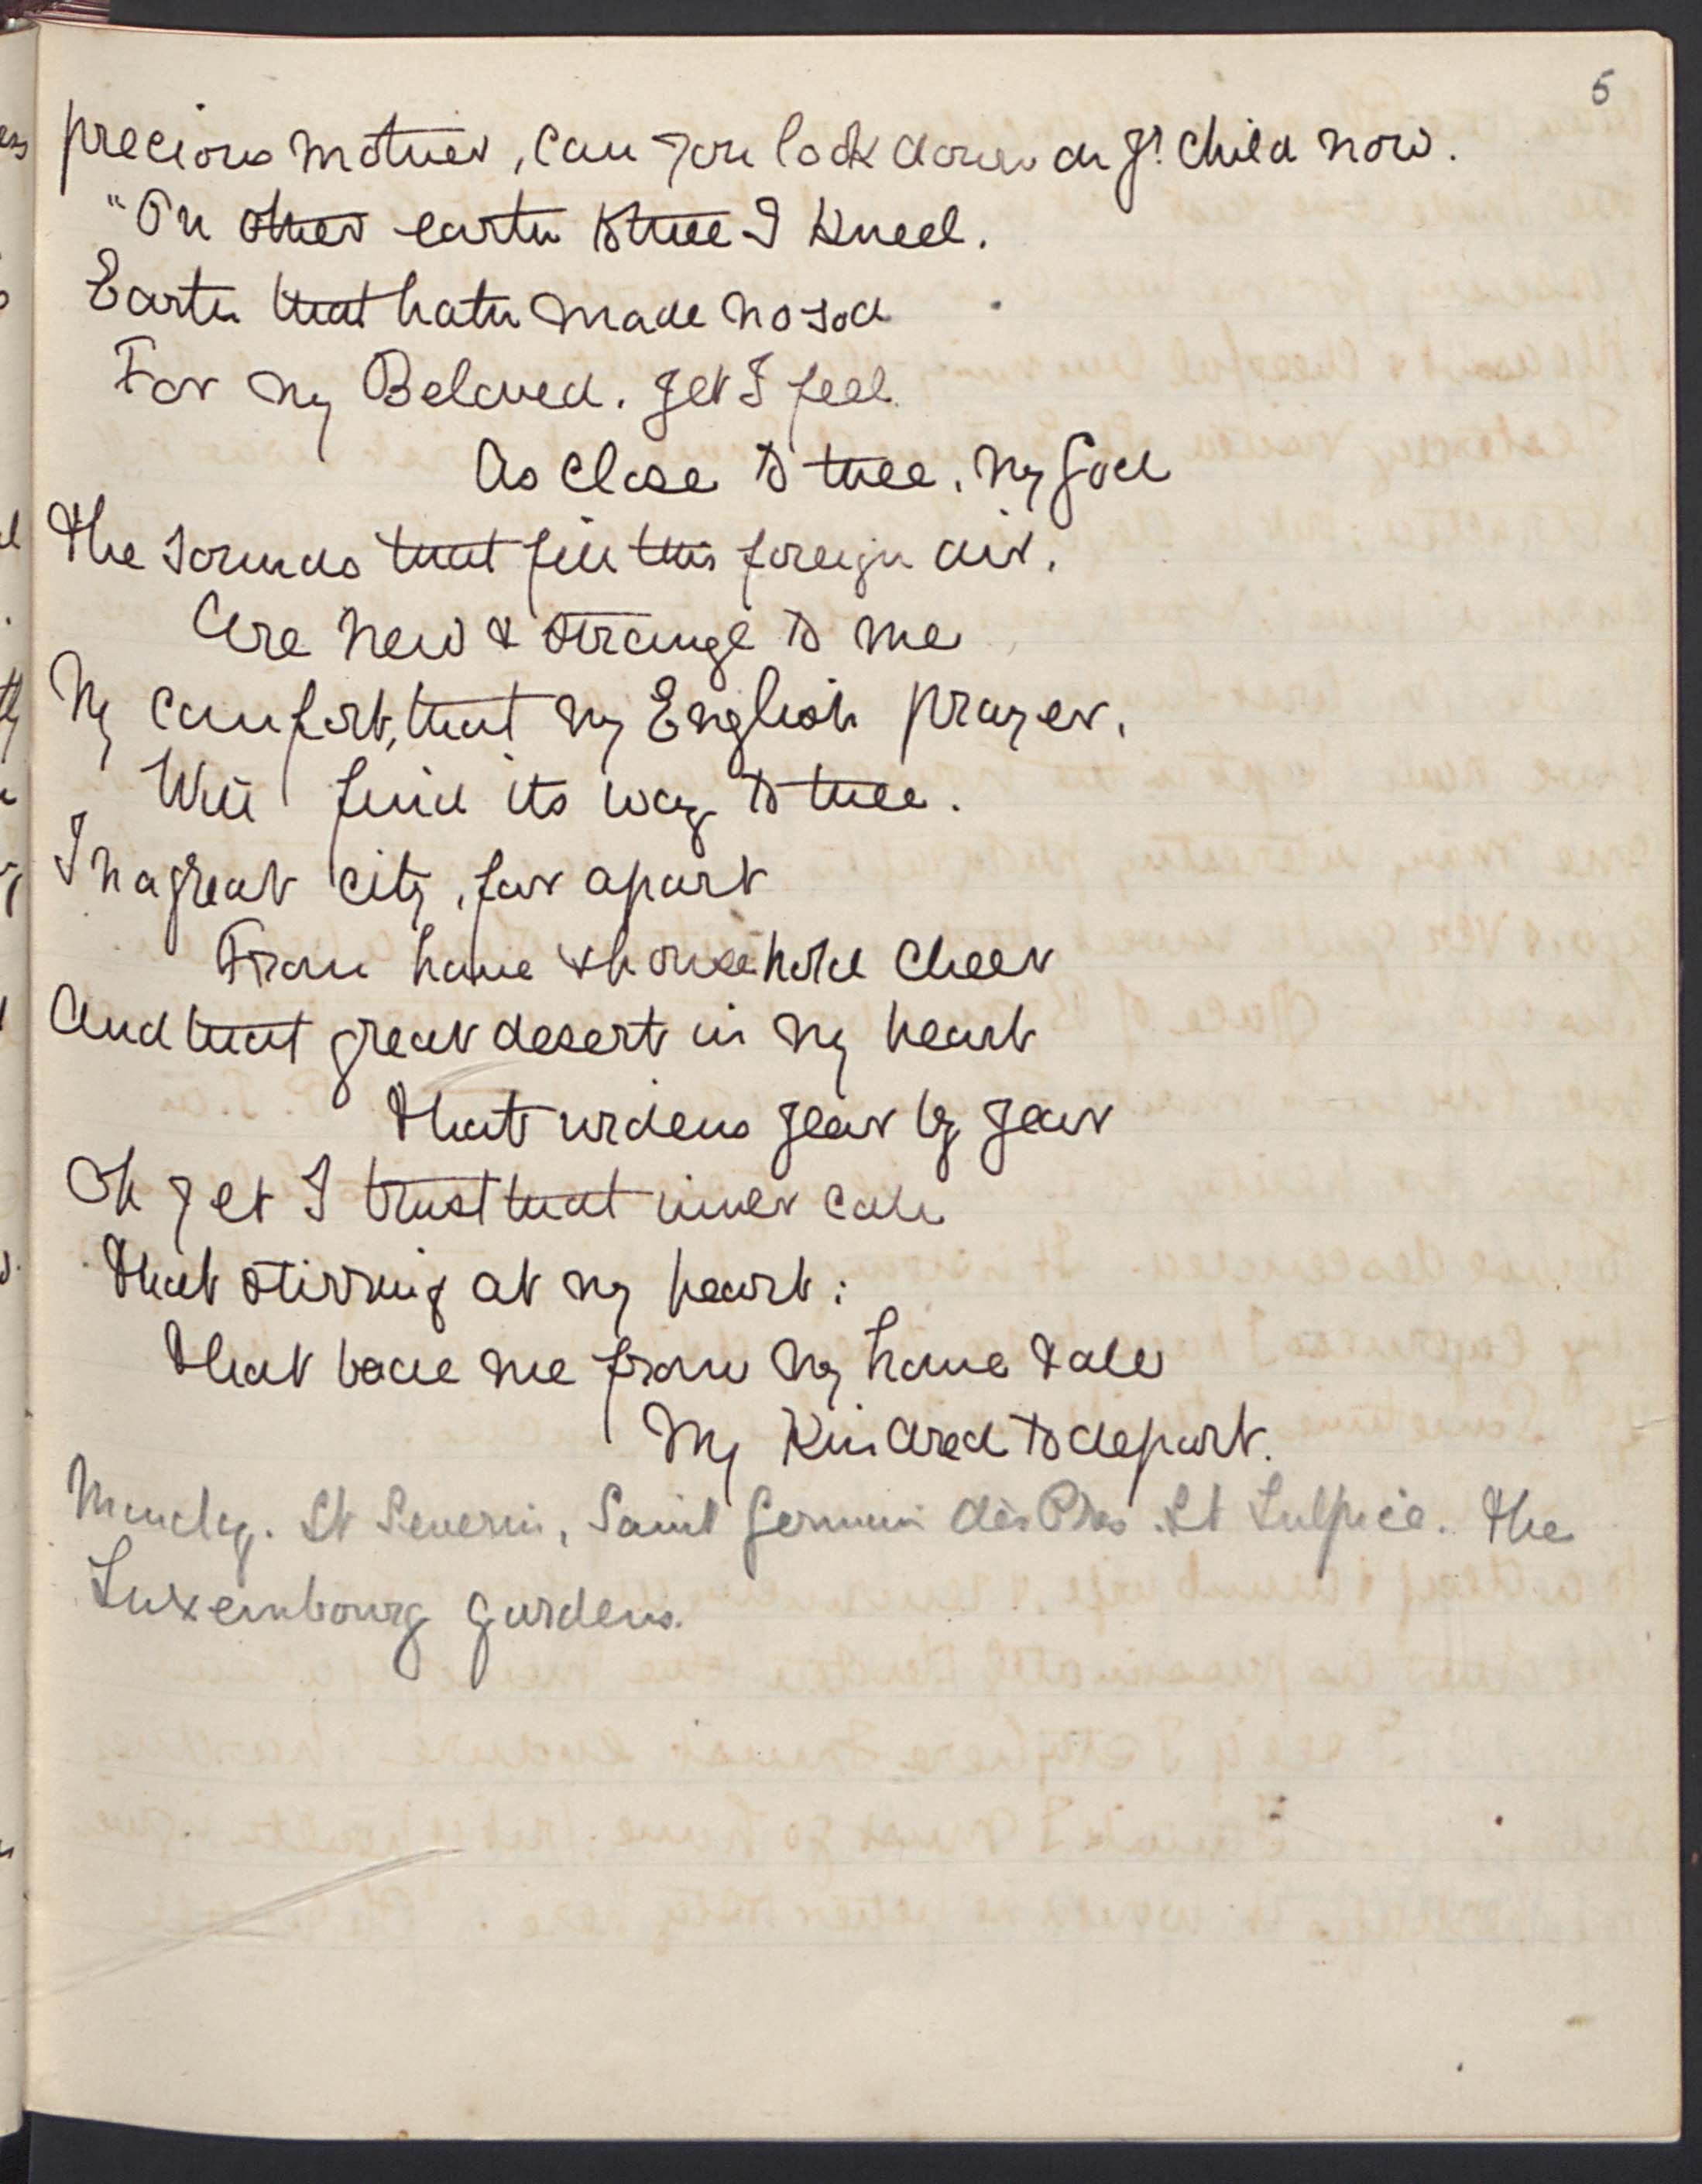 5
precious mother, can you look down on yr. child now.
"On other earth to thee I kneel.
Earth that hath made no sod
For my Beloved. yet I feel
As close to thee, my God
The sounds that fill this foreign air.
Are new & strange to me
My comfort, that my English prayer.
Will find its way to thee.
In a great city, far apart
From home & household cheer
And that great desert in my heart
That widens year by year
Oh yet I trust that inner call
That stirring at my heart:
That bade me from my home & all
My Kindred to depart.
Monday. St Severin, Saint Germain des Prés. St Sulpice. The
Luxembourg gardens.